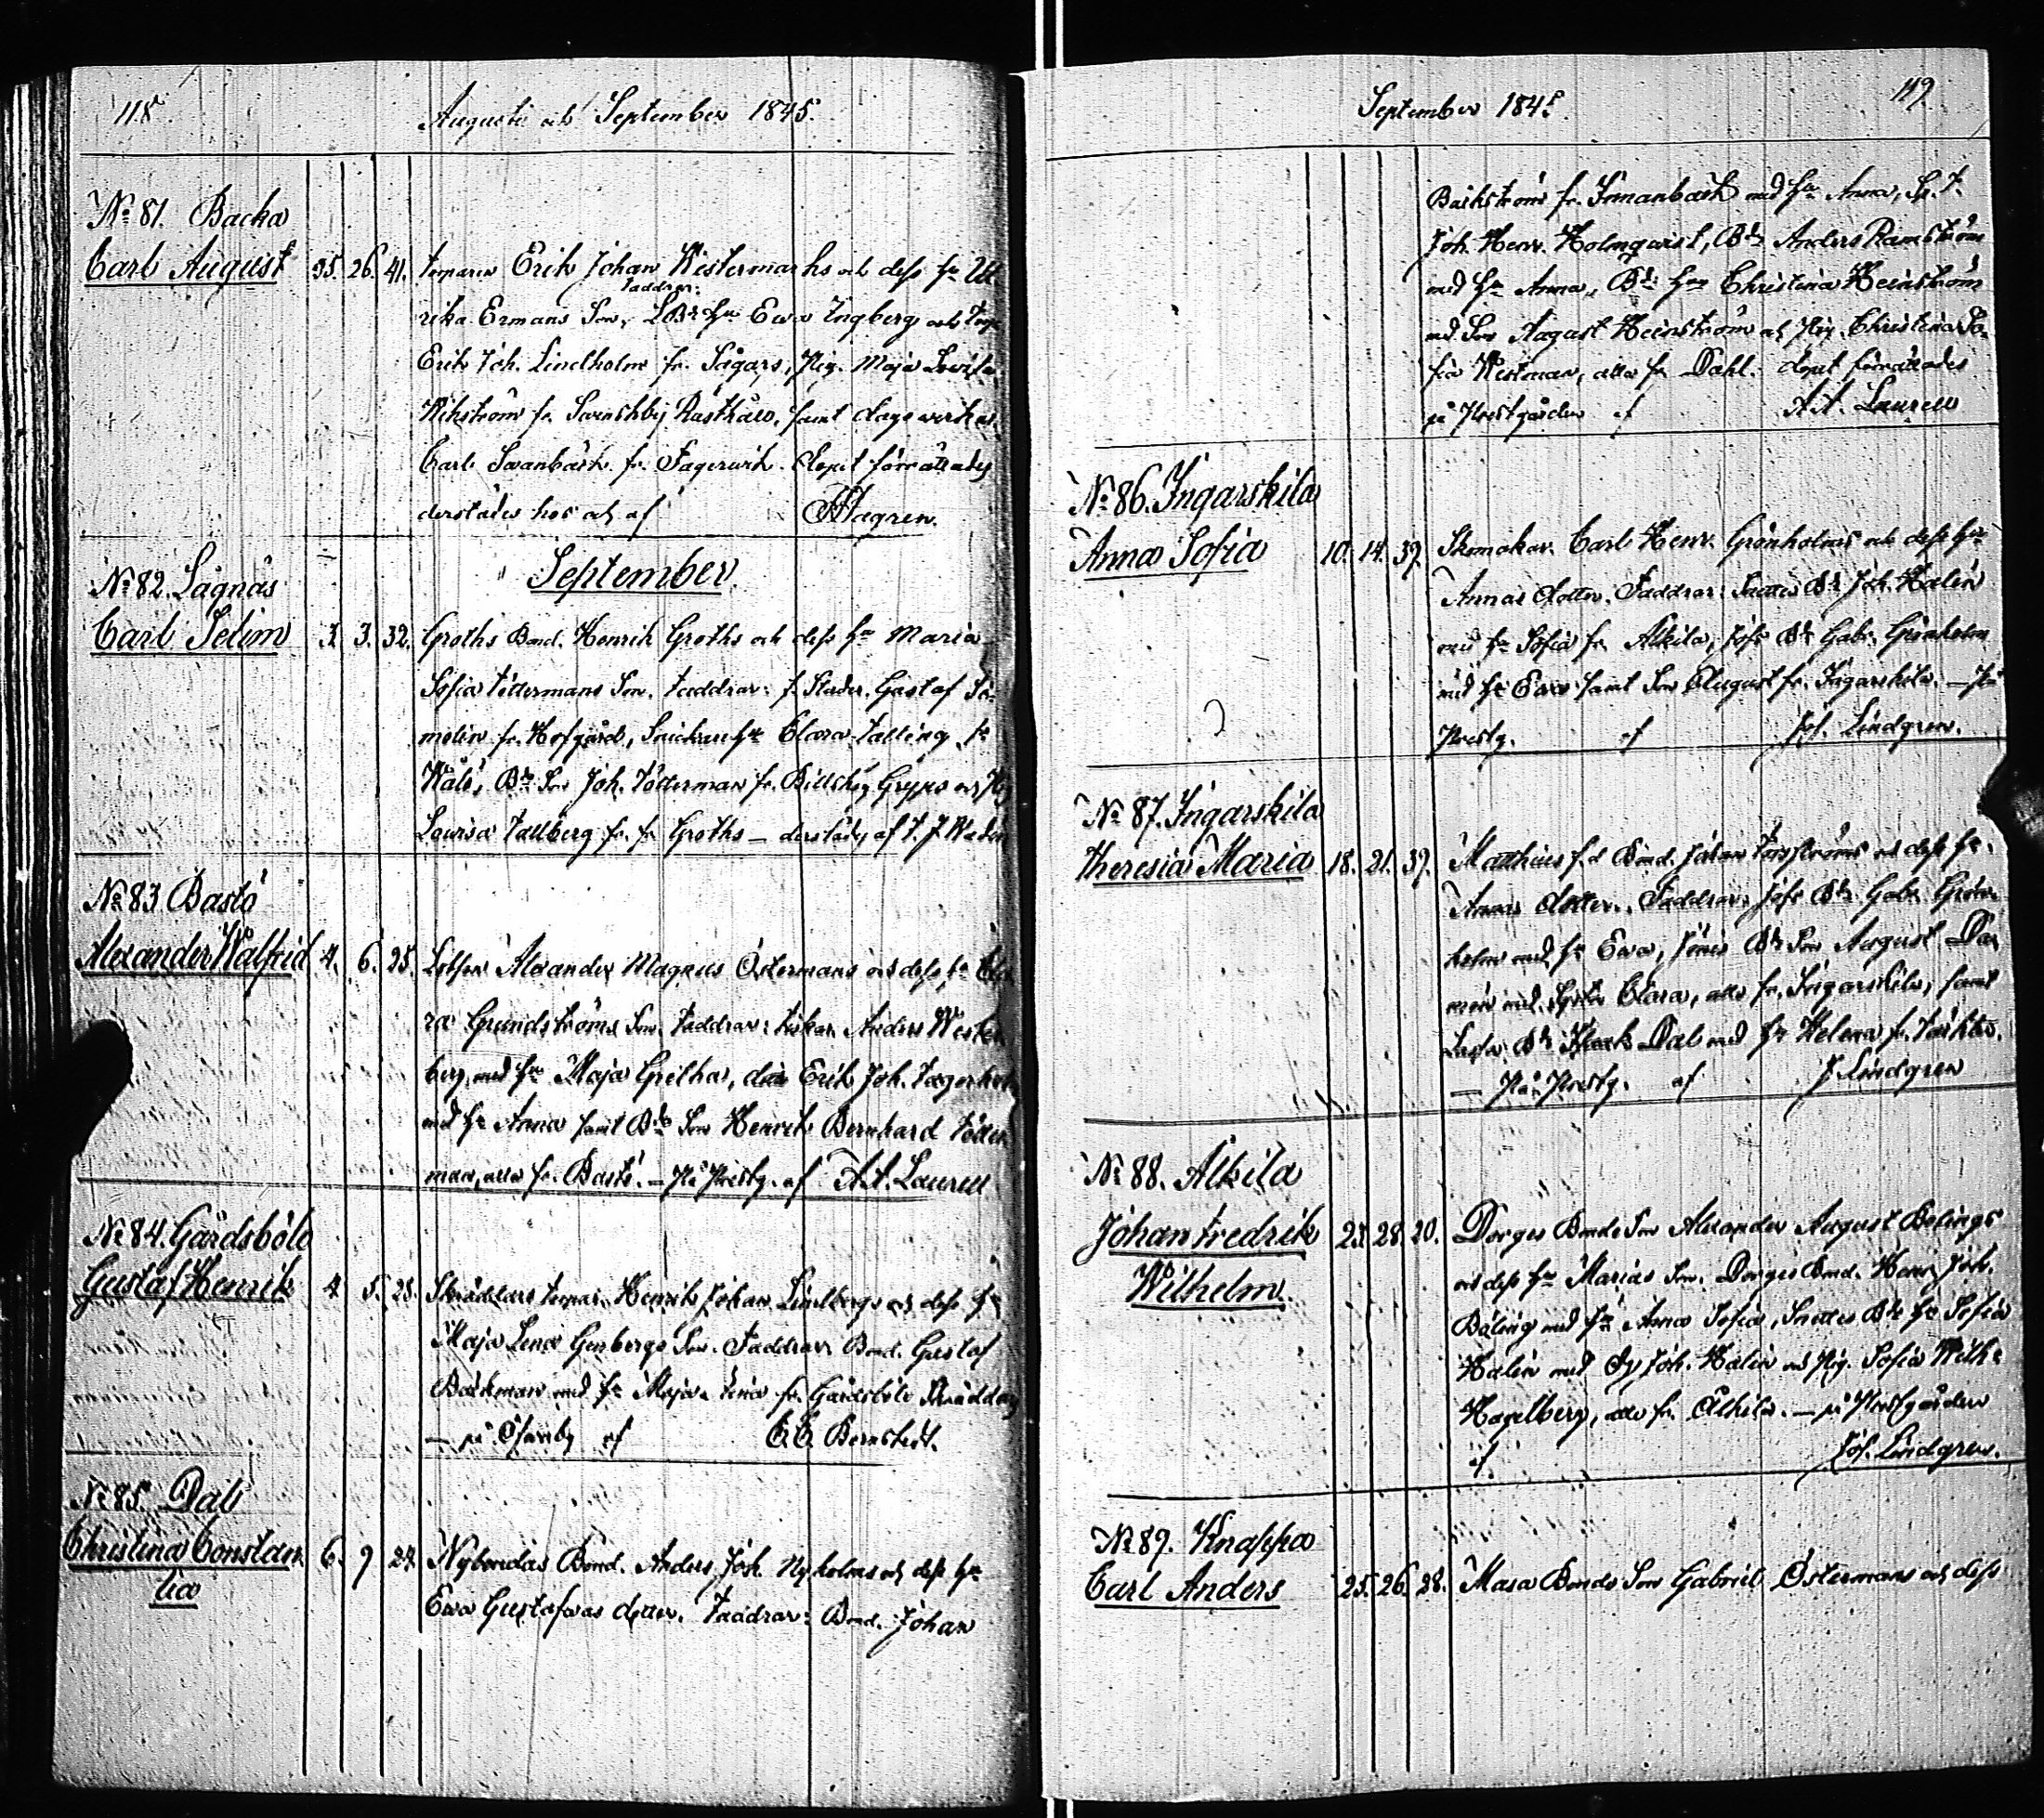 118.
Augusti och September 1845.
No 81. Backa
Carl August 25. 26. 41. torparen Erik Johan Westermarks och dess hu Ul
Faddrar:
rika Ermans Son, Ewa Ingberg och
Erik Joh. Lindholm fr. Sågars, Pig. Maja Lovisa
Wikström fr. Svenskby Rusthåll, samt dagsverkar.
Carl Svanbäck fr. Fagervik. Dopet förrättades
derstädes hos och af Hagren.
September.
No 82. Lågnäs
Carl Selim 1. 3. 32. Groths Bond. Henrik Groths och dess hu Maria
Sofia Töttermans Son. Faddrar: Gustaf
molin fr. Hofgård, Snickare hu Clara Talling fr
Wålö, Bde Son Joh. Tötterman fr. Billskog Gryps och Pig
Lovisa Tallberg fr. Groths — derstädes af
No 83 Bastö
Alexander Walfrid 4. 6. 25. Lotsen Alexander Magnus Östermans och dess hu Cla
ra Grundströms Son. Faddrar: fiskar. Anders Wester
berg med hu Maja Gretha, dito Erik Joh. Fagerholm
med hu Anna samt Bde Son Henrik Bernhard Tötter
man, alla fr. Bastö. — På Prestg. af A. A. Laurell
No 84. Gårdsböle
Gustaf Henrik 4. 5. 28. Skräddars torpar. Henrik Johan Lindbergs och dess hu
Maja Lena Genbergs Son. Faddrar Bond. Gustaf
Backman med hu Maja Lena fr. Gårdsböle Skräddars
— på Ösarby af E. E. Bernstedt.
No 85. Dal
Christina Constan 6. 9 24. Nybondas Bond. Anders Joh. Nyholms och dess hu
tia
Ewa Gustafvas dotter. Faddrar: Bond. Johan
September 1845.
119.
Backström fr. Innanbäck med hu Anna,
Joh. Henr. Holmqvist, Bde Anders Ramström
med hu Anna, Bde hu Christina Heinström
med Son August Heinström och Pig. Christina So
fia Westman, alla fr. Dahl. dopet förrättades
på Prestgården af A. A. Laurell
No 86. Ingarskila
Anna Sofia 10. 14. 39. Skomakar. Carl Henr. Grönholms och dess hu
Annas dotter. Faddrar: Snettes Bde Joh. Halin
med hu Sofia fr. Alkila, Jofs Bde Gabr. Grönholm
med hu Ewa samt Son August fr. Ingarskila. — På
Prestg. af Jos. Lindgren.
No 87. Ingarskila
Theresia Maria 18. 21. 39. Matthias f.d Bond. Johan Forsströms och dess hu
Annas dotter. Faddrar: Jofs Bde Gabr. Grön
holm med hu Ewa, Jönis Bde Son August Da
men med Syster Clara, alla fr. Ingarskila, samt
Bde Dal med hu Helena fr. Täkter.
— På Prestg. af J. Lindgren
No 88. Alkila
Johan Fredrik 25. 28. 20. Dorges Bonde Son Alexander August Bölings
Wilhelm.
och dess hu Marias Son. Dorges Bond. Henr. Joh.
Böling med hu Anna Sofia, Snettes Bde hu Sofia
Halin med Joh. Halin och Pig. Sofia Wilh:a
Hagelberg, alla fr. Alkila. — på Prestgården
af Jos. Lindgren.
No 89. Knappa
Carl Anders 25. 26. 28. Masa Bonde Son Gabriel Östermans och dess